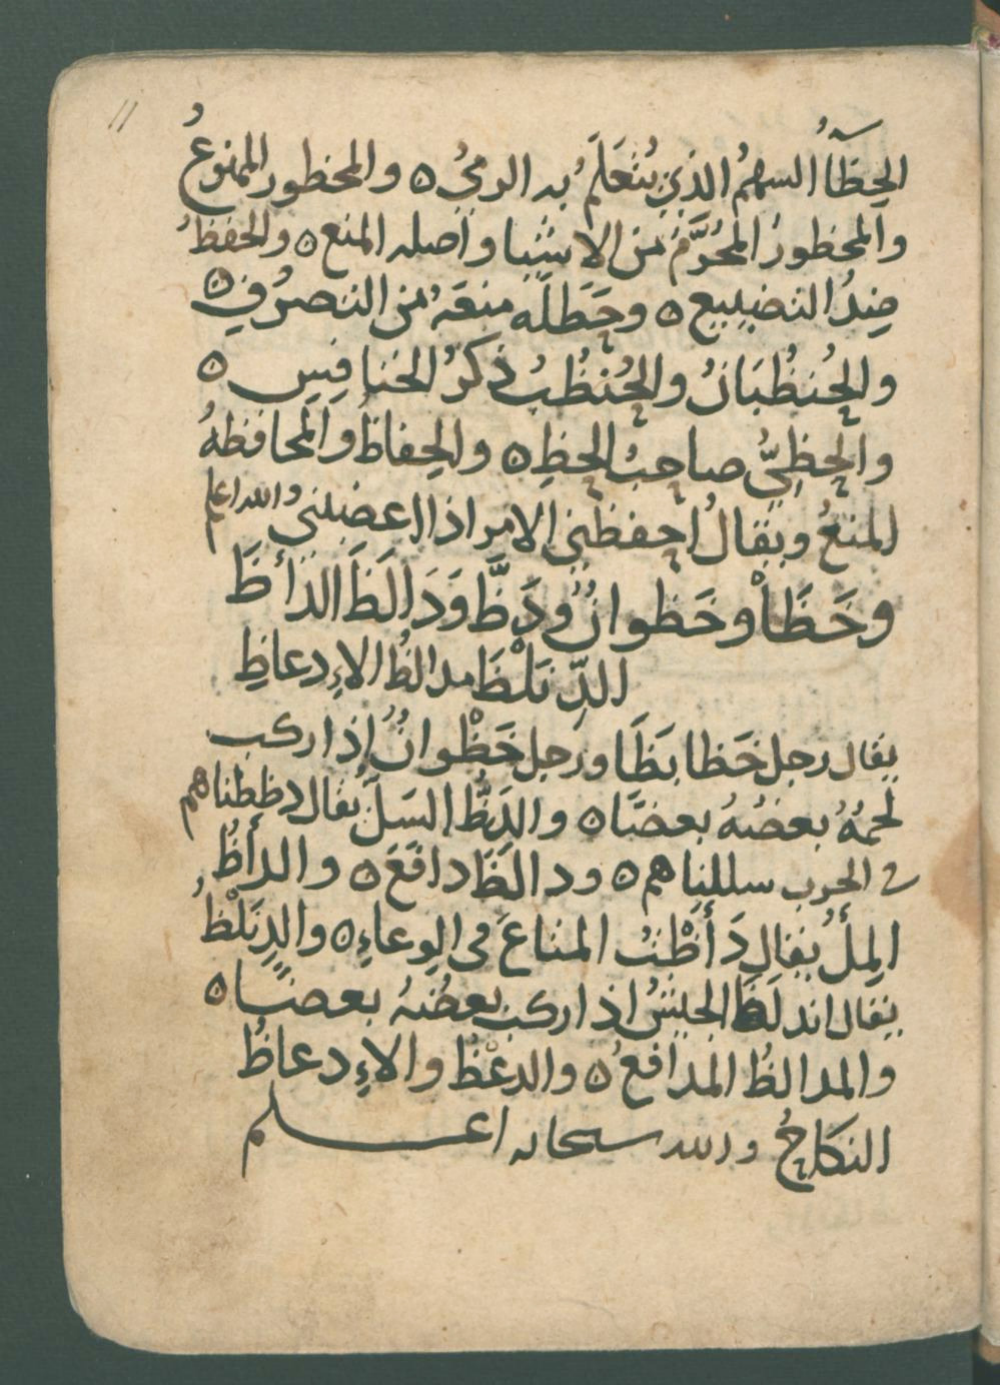 11
الحِظَآءُ السهمُ الذي يُتَعَلَّمُ به الرميُ ٥ والمحظور الممنوعُ
والمحظورُ المحُرَّمُ مَن الاشيا وأصله المنع ٥ والحفظُ
ضِدُ التضييع ٥ وحَظَلَه منعَهُ من التصرُفِ ٥
والحُنظُبَانُ والحُنظُبُ ذكرُ الخنافِسِ ٥
والحظِيُّ صاحبُ الحظِ ٥ والحِفاظ والمحافظهُ
المنعُ ويقالُ احفظني الامر اذا اغضبني والله اعلم
وخَظَاْ وخَظوانٌ ودَظَّ وَدَالَظَ الدَأظَ
الدِّنَلْظَ مدالظُ الاِدعاظِ
يقال رجل خَظا بَظَا ورجل خَظْوانٌ إذا ركب
لحمُهُ بعضُهُ بعضًا ٥ والدَظُّ السَلّ يقال دظظناهم
في الحرب سللناهم ٥ ودالظَ دافَعَ ٥ والدأظُ
المِلأُ يقال دَأَظْتُ المتاعَ في الوِعاءِ ٥ والدِنَلْظُ
يقال اندلَظَ الجيشُ اذا ركب بعضُهُ بعضًا ٥
والمدالظُ المدافعُ ٥ والدعْظُ والاِدعاظُ
النكاحُ والله سبحانه اعلم